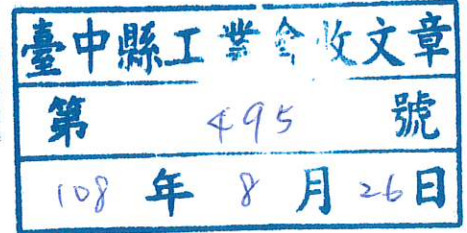 臺中縣工業會收文章
第 495 號
108 年 8 月 26 日